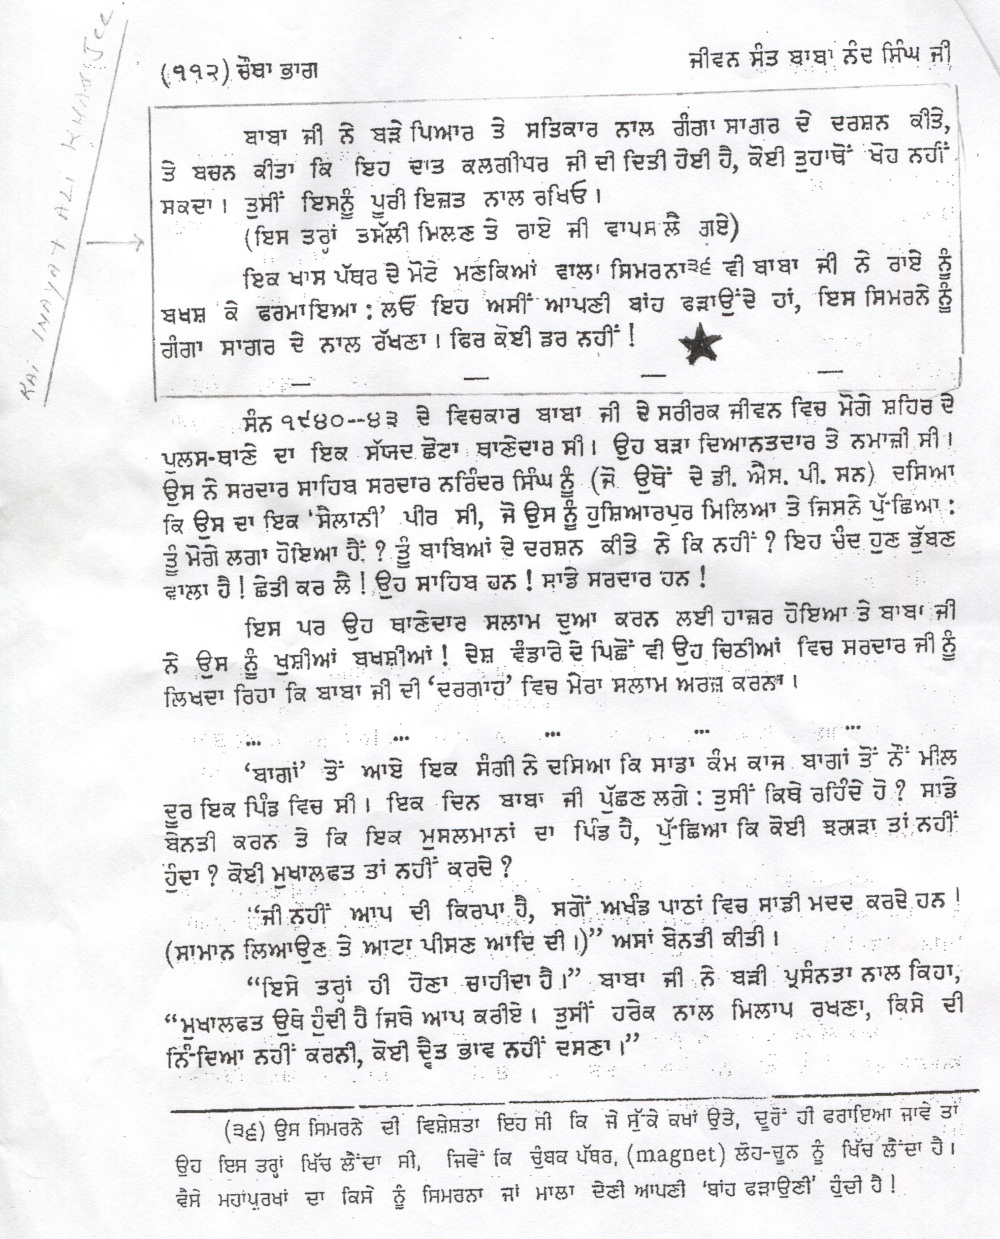 RAI INAYAT ALI KHAN Jee
(੧੧੨) ਚੌਥਾ ਭਾਗ
ਜੀਵਨ ਸੰਤ ਬਾਬਾ ਨੰਦ ਸਿੰਘ ਜੀ
ਬਾਬਾ ਜੀ ਨੇ ਬੜੇ ਪਿਆਰ ਤੇ ਸਤਿਕਾਰ ਨਾਲ ਗੰਗਾ ਸਾਗਰ ਦੇ ਦਰਸ਼ਨ ਕੀਤੇ,
ਤੇ ਬਚਨ ਕੀਤਾ ਕਿ ਇਹ ਦਾਤ ਕਲਗੀਧਰ ਜੀ ਦੀ ਦਿਤੀ ਹੋਈ ਹੈ, ਕੋਈ ਤੁਹਾਥੋਂ ਖੋਹ ਨਹੀਂ
ਸਕਦਾ। ਤੁਸੀਂ ਇਸਨੂੰ ਪੂਰੀ ਇਜ਼ਤ ਨਾਲ ਰਖਿਓ।
(ਇਸ ਤਰ੍ਹਾਂ ਤਸੱਲੀ ਮਿਲਣ ਤੇ ਰਾਏ ਜੀ ਵਾਪਸ ਲੈ ਗਏ)
ਇਕ ਖਾਸ ਪੱਥਰ ਦੇ ਮੋਟੇ ਮਣਕਿਆਂ ਵਾਲਾ ਸਿਮਰਨਾ੩੬ ਵੀ ਬਾਬਾ ਜੀ ਨੇ ਰਾਏ ਨੂੰ
ਬਖਸ਼ ਕੇ ਫਰਮਾਇਆ : ਲਓ ਇਹ ਅਸੀਂ ਆਪਣੀ ਬਾਂਹ ਫੜਾਉਂਦੇ ਹਾਂ, ਇਸ ਸਿਮਰਨੇ ਨੂੰ
ਗੰਗਾ ਸਾਗਰ ਦੇ ਨਾਲ ਰੱਖਣਾ। ਫਿਰ ਕੋਈ ਡਰ ਨਹੀਂ !
ਸੰਨ ੧੯੪੦--੪੩ ਦੇ ਵਿਚਕਾਰ ਬਾਬਾ ਜੀ ਦੇ ਸਰੀਰਕ ਜੀਵਨ ਵਿਚ ਮੋਗੇ ਸ਼ਹਿਰ ਦੇ
ਪੁਲਸ-ਥਾਣੇ ਦਾ ਇਕ ਸੱਯਦ ਛੋਟਾ ਥਾਣੇਦਾਰ ਸੀ। ਉਹ ਬੜਾ ਦਿਆਨਤਦਾਰ ਤੇ ਨਮਾਜ਼ੀ ਸੀ।
ਉਸ ਨੇ ਸਰਦਾਰ ਸਾਹਿਬ ਸਰਦਾਰ ਨਰਿੰਦਰ ਸਿੰਘ ਨੂੰ (ਜੋ ਉਥੋਂ ਦੇ ਡੀ. ਐਸ. ਪੀ. ਸਨ) ਦਸਿਆ
ਕਿ ਉਸ ਦਾ ਇਕ ‘ਸੈਲਾਨੀ’ ਪੀਰ ਸੀ, ਜੋ ਉਸ ਨੂੰ ਹੁਸ਼ਿਆਰਪੁਰ ਮਿਲਿਆ ਤੇ ਜਿਸਨੇ ਪੁੱਛਿਆ :
ਤੂੰ ਮੋਗੇ ਲਗਾ ਹੋਇਆ ਹੈਂ ? ਤੂੰ ਬਾਬਿਆਂ ਦੇ ਦਰਸ਼ਨ ਕੀਤੇ ਨੇ ਕਿ ਨਹੀਂ ? ਇਹ ਚੰਦ ਹੁਣ ਡੁੱਬਣ
ਵਾਲਾ ਹੈ ! ਛੇਤੀ ਕਰ ਲੈ ! ਉਹ ਸਾਹਿਬ ਹਨ ! ਸਾਡੇ ਸਰਦਾਰ ਹਨ !
ਇਸ ਪਰ ਉਹ ਥਾਣੇਦਾਰ ਸਲਾਮ ਦੁਆ ਕਰਨ ਲਈ ਹਾਜ਼ਰ ਹੋਇਆ ਤੇ ਬਾਬਾ ਜੀ
ਨੇ ਉਸ ਨੂੰ ਖੁਸ਼ੀਆਂ ਬਖਸ਼ੀਆਂ ! ਦੇਸ਼ ਵੰਡਾਰੇ ਦੇ ਪਿਛੋਂ ਵੀ ਉਹ ਚਿਠੀਆਂ ਵਿਚ ਸਰਦਾਰ ਜੀ ਨੂੰ
ਲਿਖਦਾ ਰਿਹਾ ਕਿ ਬਾਬਾ ਜੀ ਦੀ ‘ਦਰਗਾਹ’ ਵਿਚ ਮੇਰਾ ਸਲਾਮ ਅਰਜ਼ ਕਰਨਾ।
... ... ... ... ...
‘ਬਾਗਾਂ’ ਤੋਂ ਆਏ ਇਕ ਸੰਗੀ ਨੇ ਦਸਿਆ ਕਿ ਸਾਡਾ ਕੰਮ ਕਾਜ ਬਾਗਾਂ ਤੋਂ ਨੌਂ ਮੀਲ
ਦੂਰ ਇਕ ਪਿੰਡ ਵਿਚ ਸੀ। ਇਕ ਦਿਨ ਬਾਬਾ ਜੀ ਪੁੱਛਣ ਲਗੇ : ਤੁਸੀਂ ਕਿਥੇ ਰਹਿੰਦੇ ਹੋ ? ਸਾਡੇ
ਬੇਨਤੀ ਕਰਨ ਤੇ ਕਿ ਇਕ ਮੁਸਲਮਾਨਾਂ ਦਾ ਪਿੰਡ ਹੈ, ਪੁੱਛਿਆ ਕਿ ਕੋਈ ਝਗੜਾ ਤਾਂ ਨਹੀਂ
ਹੁੰਦਾ ? ਕੋਈ ਮੁਖਾਲਫਤ ਤਾਂ ਨਹੀਂ ਕਰਦੇ ?
“ਜੀ ਨਹੀਂ ਆਪ ਦੀ ਕਿਰਪਾ ਹੈ, ਸਗੋਂ ਅਖੰਡ ਪਾਠਾਂ ਵਿਚ ਸਾਡੀ ਮਦਦ ਕਰਦੇ ਹਨ !
(ਸਾਮਾਨ ਲਿਆਉਣ ਤੇ ਆਟਾ ਪੀਸਣ ਆਦਿ ਦੀ।)” ਅਸਾਂ ਬੇਨਤੀ ਕੀਤੀ।
“ਇਸੇ ਤਰ੍ਹਾਂ ਹੀ ਹੋਣਾ ਚਾਹੀਦਾ ਹੈ।” ਬਾਬਾ ਜੀ ਨੇ ਬੜੀ ਪ੍ਰਸੰਨਤਾ ਨਾਲ ਕਿਹਾ,
“ਮੁਖਾਲਫਤ ਉਥੇ ਹੁੰਦੀ ਹੈ ਜਿਥੇ ਆਪ ਕਰੀਏ। ਤੁਸੀਂ ਹਰੇਕ ਨਾਲ ਮਿਲਾਪ ਰਖਣਾ, ਕਿਸੇ ਦੀ
ਨਿੰਦਿਆ ਨਹੀਂ ਕਰਨੀ, ਕੋਈ ਦ੍ਵੈਤ ਭਾਵ ਨਹੀਂ ਦਸਣਾ।”
(੩੬) ਉਸ ਸਿਮਰਨੇ ਦੀ ਵਿਸ਼ੇਸ਼ਤਾ ਇਹ ਸੀ ਕਿ ਜੇ ਸੁੱਕੇ ਕਖਾਂ ਉਤੇ, ਦੂਰੋਂ ਹੀ ਫਰਾਇਆ ਜਾਵੇ ਤਾਂ
ਉਹ ਇਸ ਤਰ੍ਹਾਂ ਖਿੱਚ ਲੈਂਦਾ ਸੀ, ਜਿਵੇਂ ਕਿ ਚੁੰਬਕ ਪੱਥਰ, (magnet) ਲੋਹ-ਚੂਨ ਨੂੰ ਖਿੱਚ ਲੈਂਦਾ ਹੈ।
ਵੈਸੇ ਮਹਾਂਪੁਰਖਾਂ ਦਾ ਕਿਸੇ ਨੂੰ ਸਿਮਰਨਾ ਜਾਂ ਮਾਲਾ ਦੇਣੀ ਆਪਣੀ ‘ਬਾਂਹ ਫੜਾਉਣੀ’ ਹੁੰਦੀ ਹੈ !